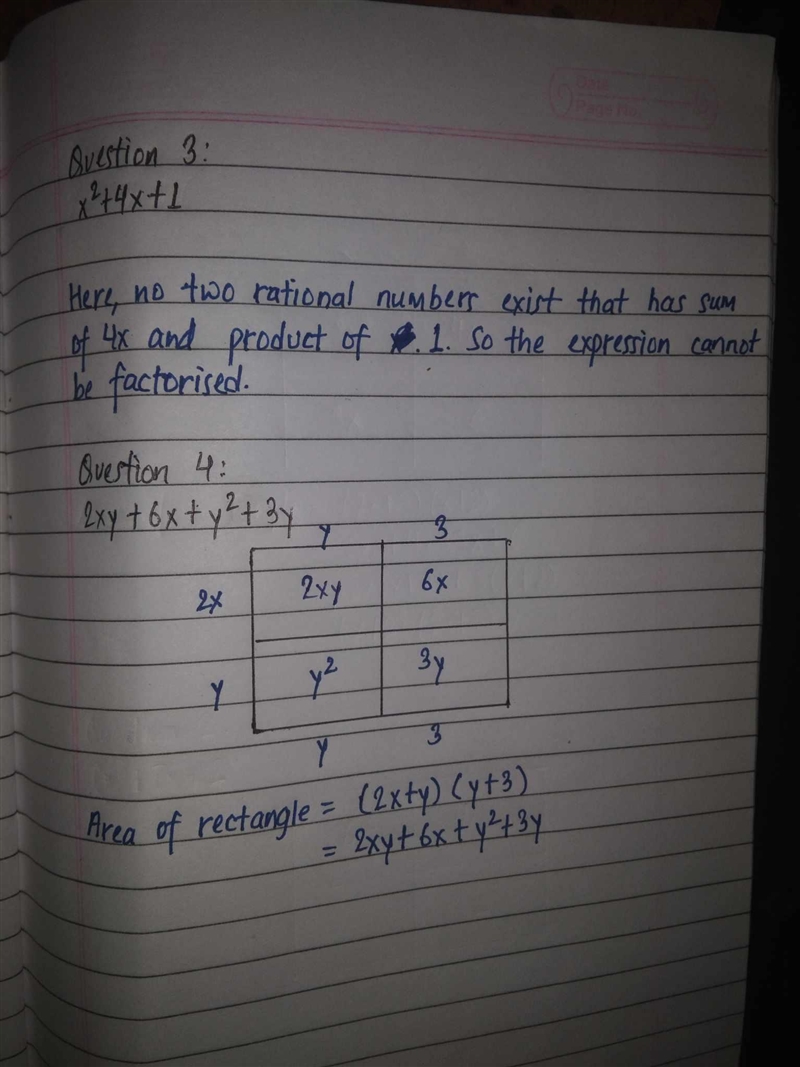 Date
Page No.
Question 3:
x²+4x+1
Here, no two rational numbers exist that has sum
of 4x and product of 1. So the expression cannot
be factorised.
Question 4:
2xy + 6x + y² + 3y
y 3
2x 2xy 6x
y y² 3y
y 3
Area of rectangle = (2x+y) (y+3)
= 2xy + 6x + y² + 3y